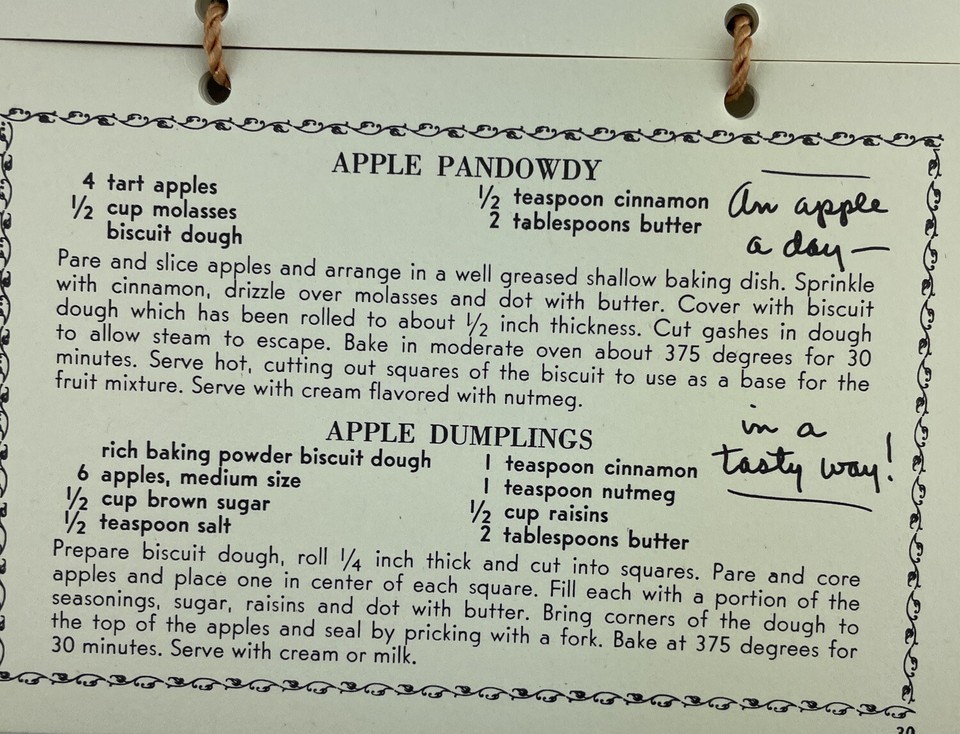 APPLE PANDOWDY
4 tart apples
1/2 cup molasses
biscuit dough
1/2 teaspoon cinnamon
2 tablespoons butter
An apple
a day—
Pare and slice apples and arrange in a well greased shallow baking dish. Sprinkle
with cinnamon, drizzle over molasses and dot with butter. Cover with biscuit
dough which has been rolled to about 1/2 inch thickness. Cut gashes in dough
to allow steam to escape. Bake in moderate oven about 375 degrees for 30
minutes. Serve hot, cutting out squares of the biscuit to use as a base for the
fruit mixture. Serve with cream flavored with nutmeg.
in a
tasty way!
APPLE DUMPLINGS
rich baking powder biscuit dough
6 apples, medium size
1/2 cup brown sugar
1/2 teaspoon salt
1 teaspoon cinnamon
1 teaspoon nutmeg
1/2 cup raisins
2 tablespoons butter
Prepare biscuit dough, roll 1/4 inch thick and cut into squares. Pare and core
apples and place one in center of each square. Fill each with a portion of the
seasonings, sugar, raisins and dot with butter. Bring corners of the dough to
the top of the apples and seal by pricking with a fork. Bake at 375 degrees for
30 minutes. Serve with cream or milk.